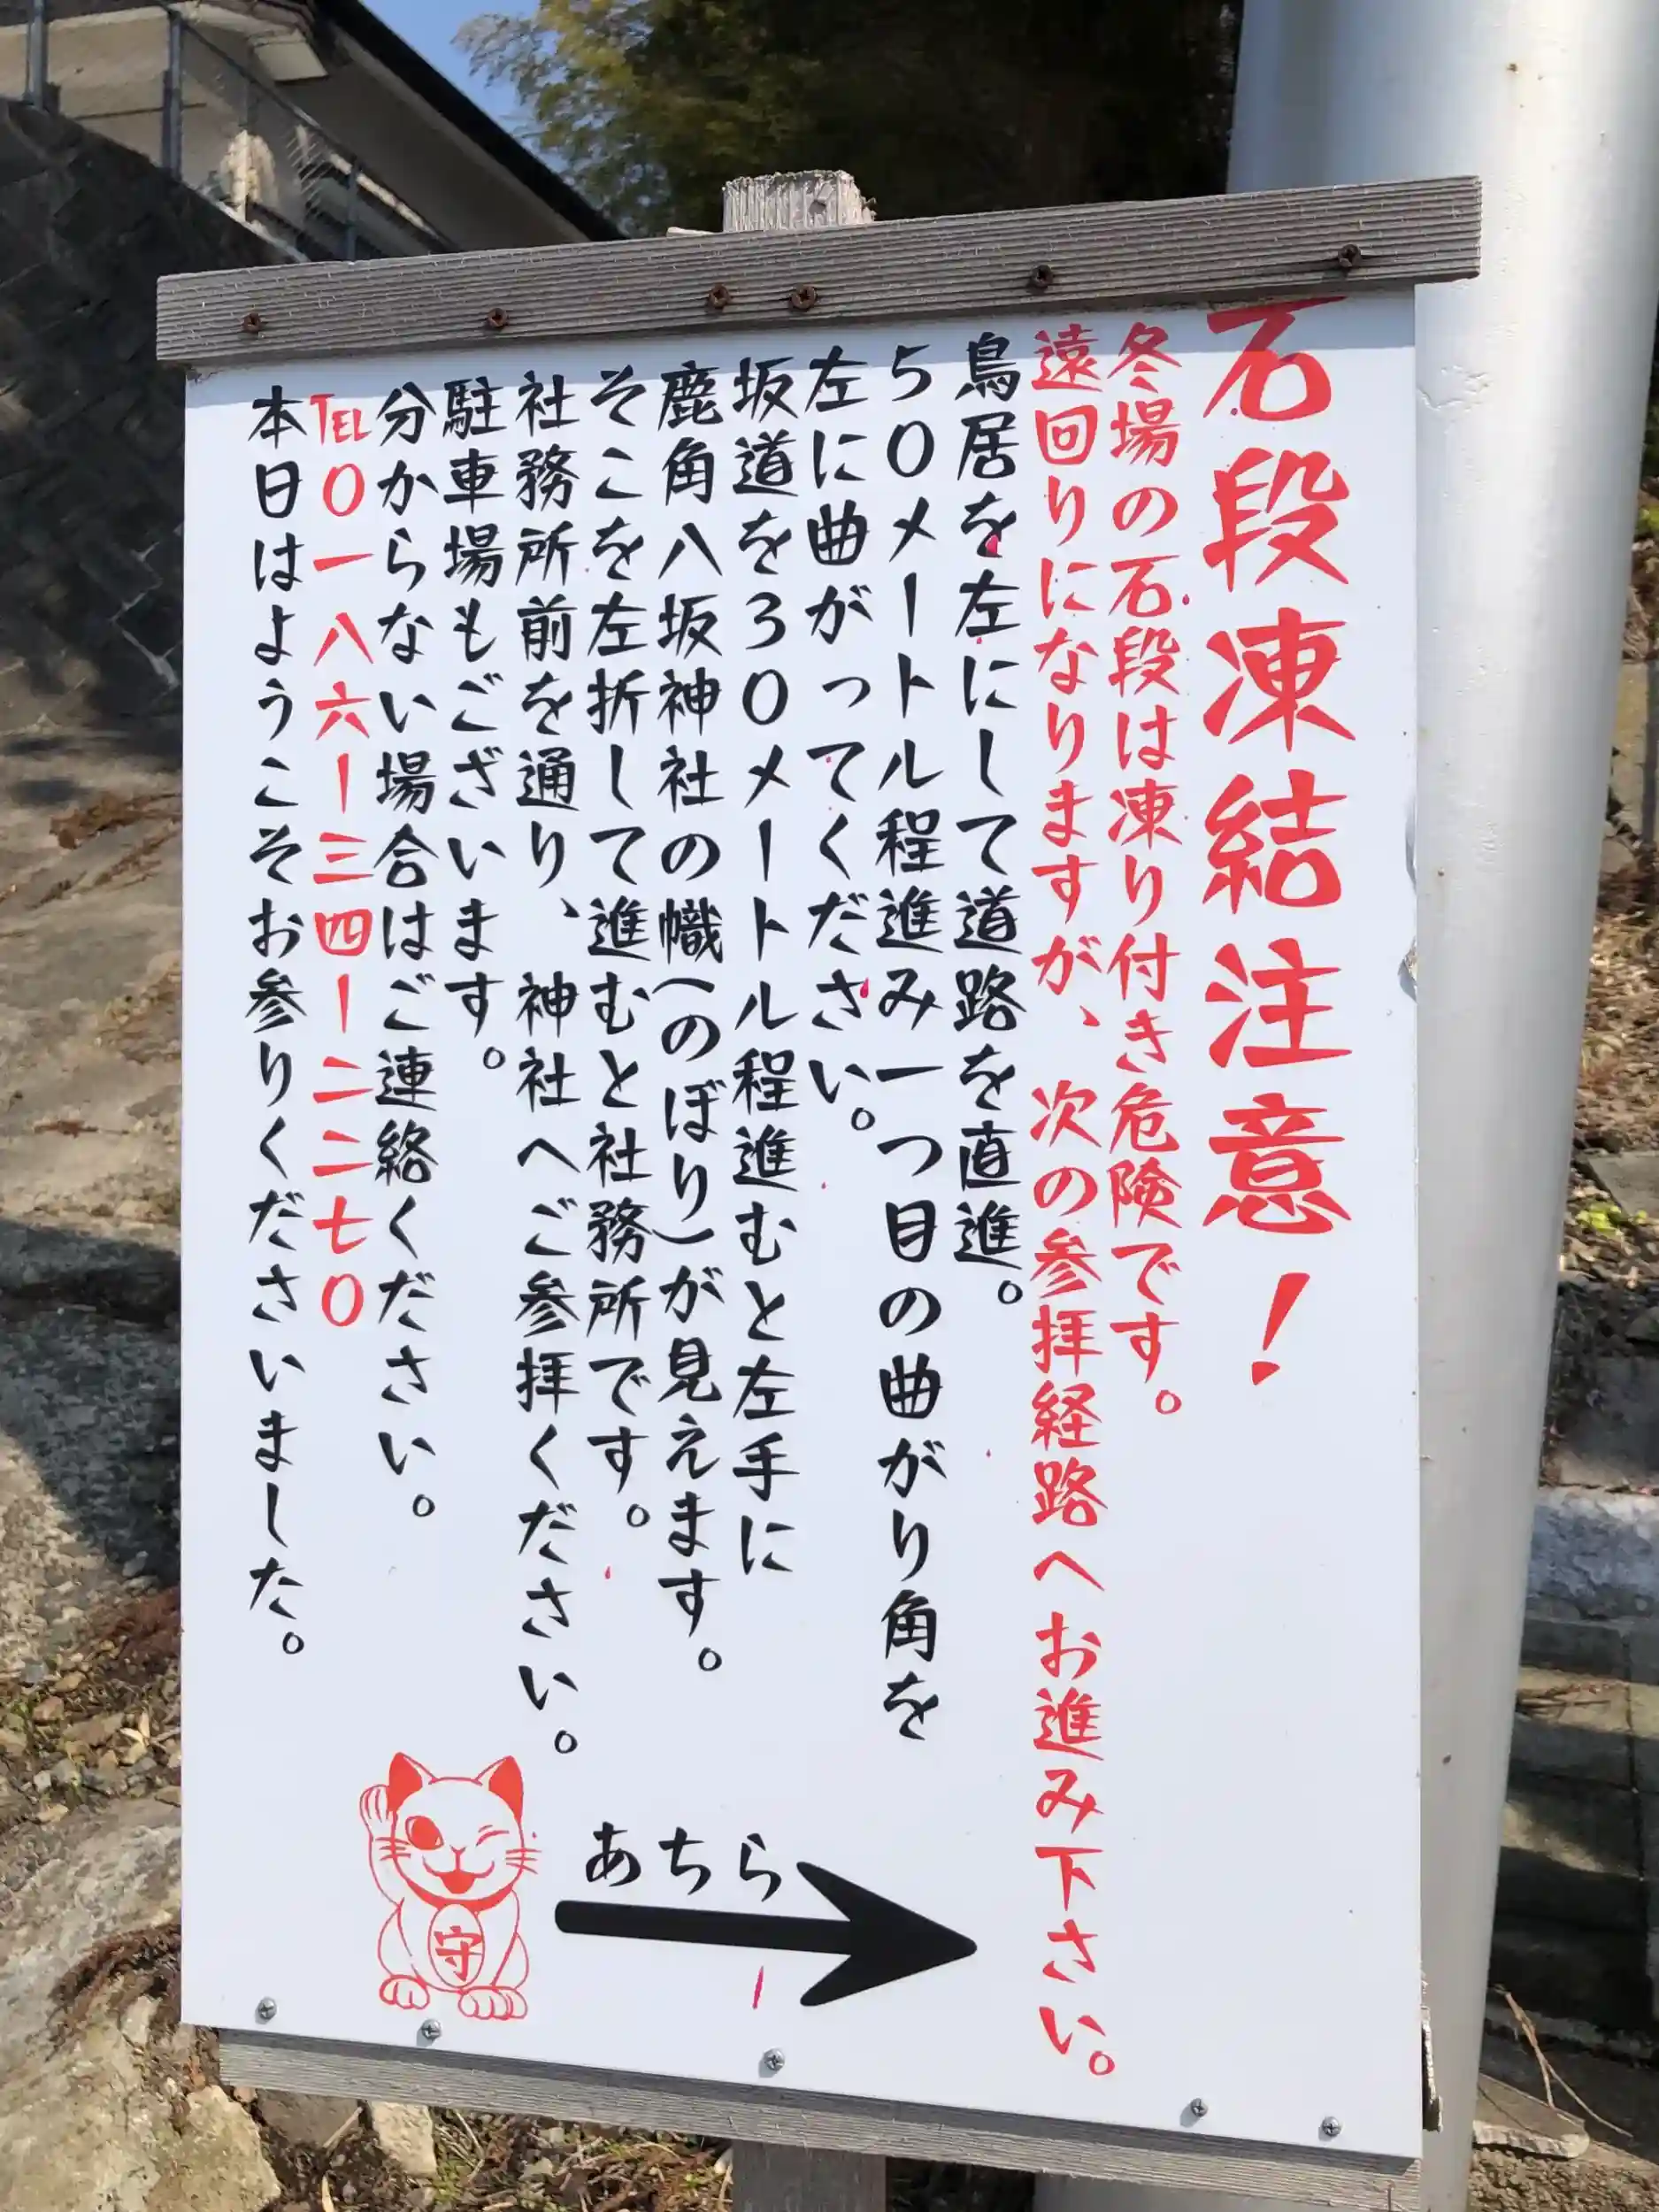 石段凍結注意!
冬場の石段は凍り付き危険です。
遠回りになりますが、次の参拝経路へお進み下さい。
鳥居を左にして道路を直進。
50メートル程進み一つ目の曲がり角を
左に曲がってください。
坂道を30メートル程進むと左手に
鹿角八坂神社の幟(のぼり)が見えます。
そこを左折して進むと社務所です。
社務所前を通り、神社へご参拝ください。
駐車場もございます。
分からない場合はご連絡ください。
TEL0一八六ー三四ー二二七0
本日はようこそお参りくださいました。
あちら
守